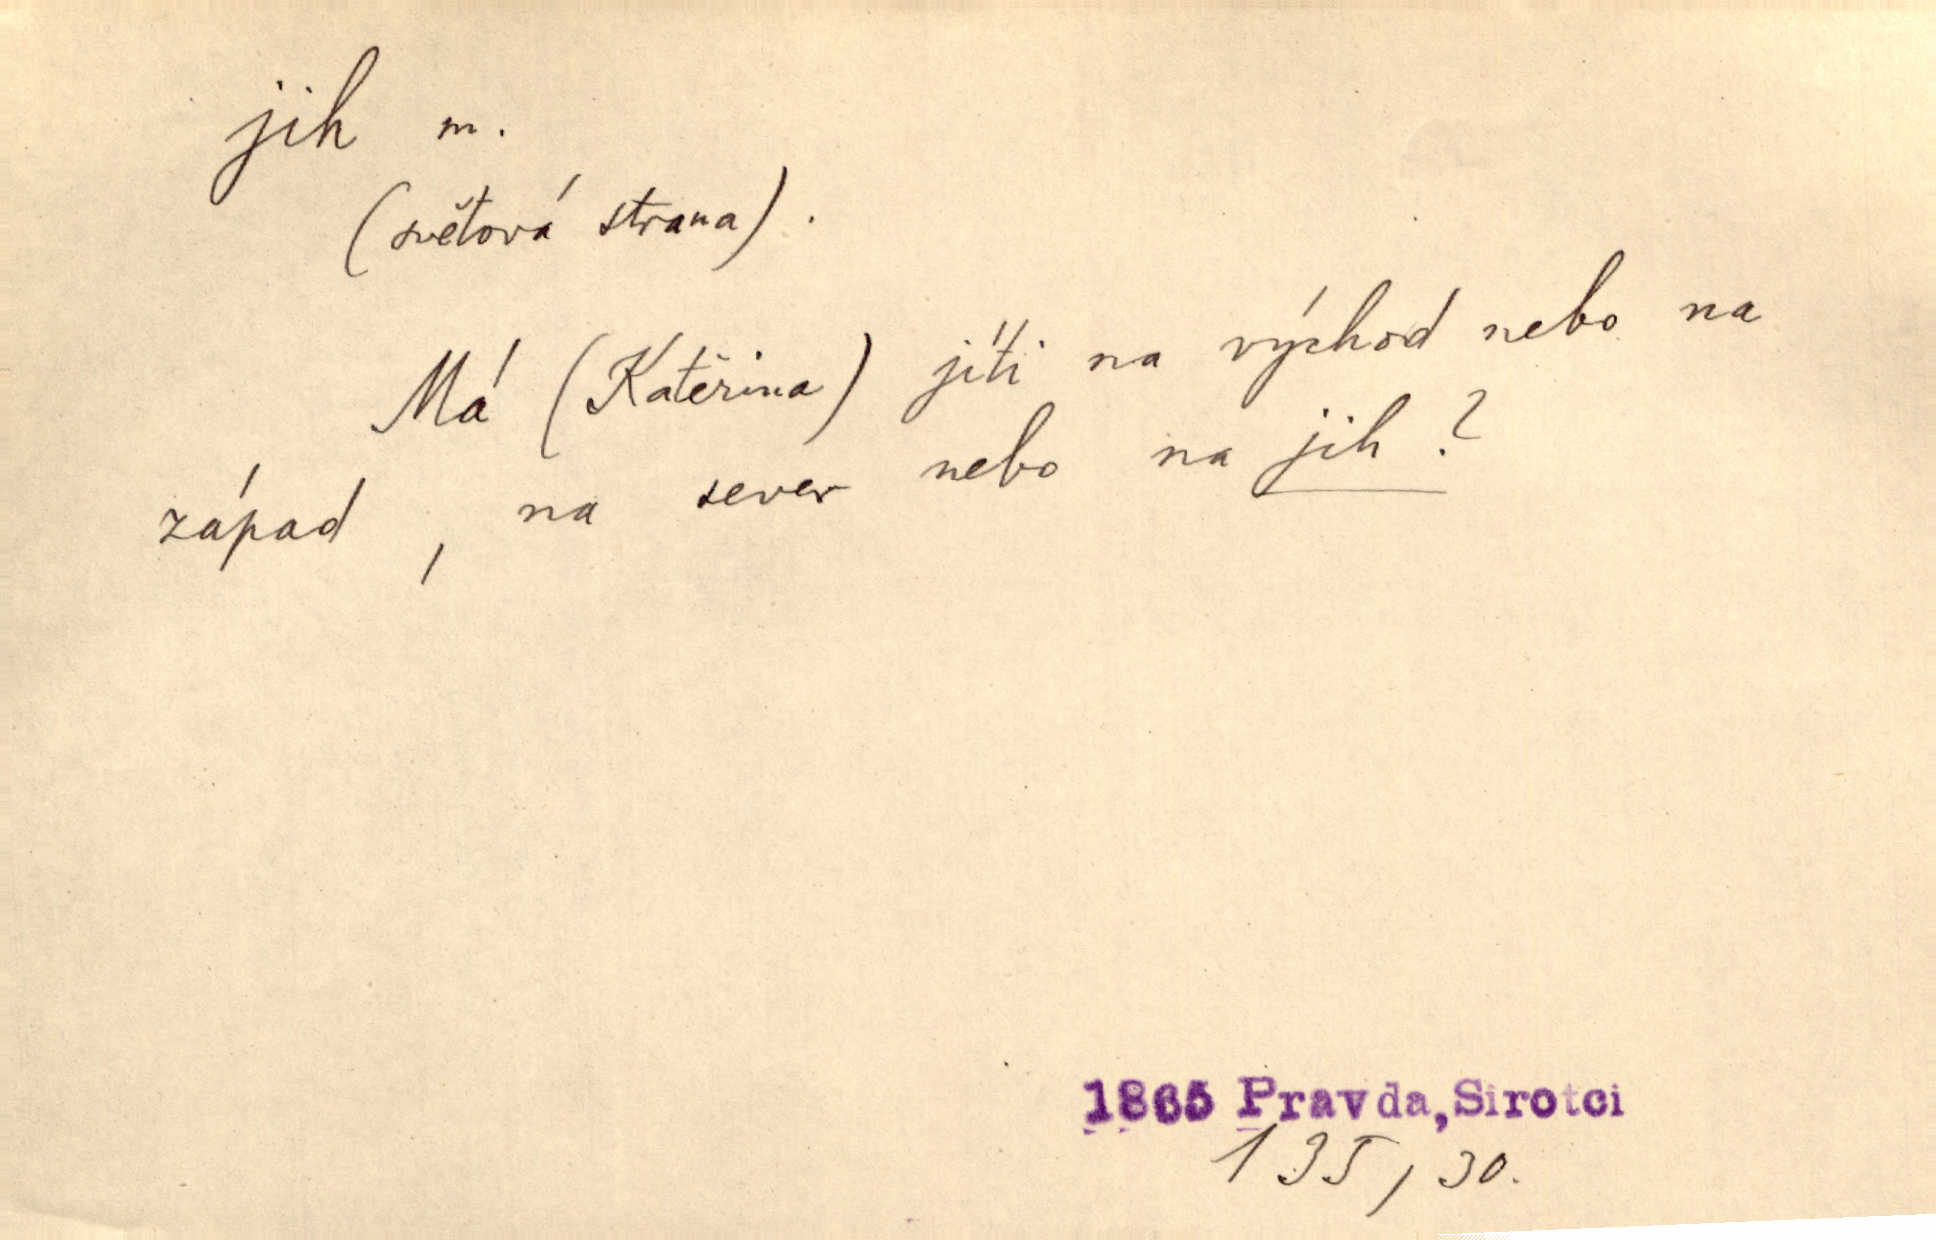 jih m.
(světová strana).
Má (Kateřina) jíti na východ nebo na
západ, na sever nebo na jih?
1865 Pravda, Sirotci
135, 30.